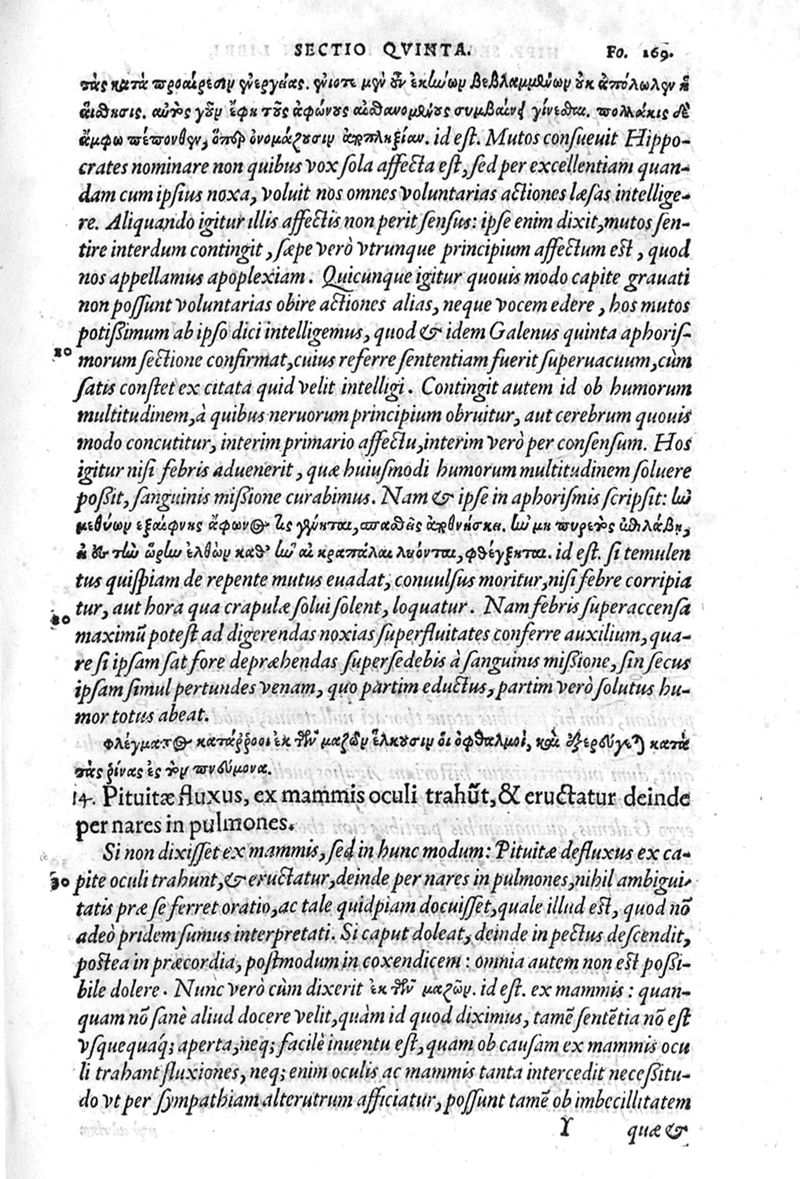 SECTIO QVINTA. Fo. 169.
τὰς κατὰ προαίρεσιν ἐνεργείας. ἐνίοτε μὲν οὖν ἐκείνων βεβλαμμένων οὐκ ἀπόλωλεν ἡ
αἴσθησις. αὐτὸς γοῦν ἔφη τοὺς ἀφώνους αἰσθανομένους συμβαίνει γίνεσθαι. πολλάκις δὲ
ἄμφω πέπονθεν, ὅπερ ὀνομάζουσιν ἀποπληξίαν. id eſt. Mutos conſueuit Hippo-
crates nominare non quibus vox ſola affecta eſt, ſed per excellentiam quan-
dam cum ipſius noxa, voluit nos omnes voluntarias actiones læſas intellige-
re. Aliquando igitur illis affectis non perit ſenſus: ipſe enim dixit, mutos ſen-
tire interdum contingit, ſæpe verò vtrunque principium affectum eſt, quod
nos appellamus apoplexiam. Quicunque igitur quouis modo capite grauati
non poſſunt voluntarias obire actiones alias, neque vocem edere, hos mutos
potißimum ab ipſo dici intelligemus, quod & idem Galenus quinta aphoriſ-
morum ſectione confirmat, cuius referre ſententiam fuerit ſuperuacuum, cùm
ſatis conſtet ex citata quid velit intelligi. Contingit autem id ob humorum
multitudinem, à quibus neruorum principium obruitur, aut cerebrum quouis
modo concutitur, interim primario affectu, interim verò per conſenſum. Hos
igitur niſi febris aduenerit, quæ huiuſmodi humorum multitudinem ſoluere
poßit, ſanguinis mißione curabimus. Nam & ipſe in aphoriſmis ſcripſit: ἢν
μεθύων ἐξαίφνης ἄφωνος τις γένηται, σπασθεὶς ἀποθνήσκει. ἢν μὴ πυρετὸς ἐπιλάβῃ,
ἢ ἐς τὴν ὥρην ἐλθὼν καθ' ἣν αἱ κραιπάλαι λύονται, φθέγξηται. id eſt. ſi temulen
tus quiſpiam de repente mutus euadat, conuulſus moritur, niſi febre corripia
tur, aut hora qua crapulæ ſolui ſolent, loquatur. Nam febris ſuperaccenſa
maximū poteſt ad digerendas noxias ſuperfluitates conferre auxilium, qua-
re ſi ipſam ſat fore depræhendas ſuperſedebis à ſanguinis mißione, ſin ſecus
ipſam ſimul pertundes venam, quo partim eductus, partim verò ſolutus hu-
mor totus abeat.
φλέγματος κατάρροοι ἐκ τῶν μαζῶν ἕλκουσιν οἱ ὀφθαλμοί, καὶ ἐξερεύγεται κατὰ
τὰς ῥίνας ἐς τὸν πνεύμονα.
14. Pituitæ fluxus, ex mammis oculi trahūt, & eructatur deinde
per nares in pulmones.
Si non dixiſſet ex mammis, ſed in hunc modum: Pituitæ defluxus ex ca-
30 pite oculi trahunt, & eructatur, deinde per nares in pulmones, nihil ambigui
tatis præ ſe ferret oratio, ac tale quidpiam docuiſſet, quale illud eſt, quod nō
adeò pridem ſumus interpretati. Si caput doleat, deinde in pectus deſcendit,
poſtea in præcordia, poſtmodum in coxendicem: omnia autem non eſt poßi-
bile dolere. Nunc verò cùm dixerit ἐκ τῶν μαζῶν. id eſt. ex mammis: quan-
quam nō ſanè aliud docere velit, quàm id quod diximus, tamē ſentētia nō eſt
vſquequaq; aperta, neq; facilè inuentu eſt, quam ob cauſam ex mammis ocu
li trahant fluxiones, neq; enim oculis ac mammis tanta intercedit neceßitu-
do vt per ſympathiam alterutrum afficiatur, poſſunt tamē ob imbecillitatem
Y quæ &